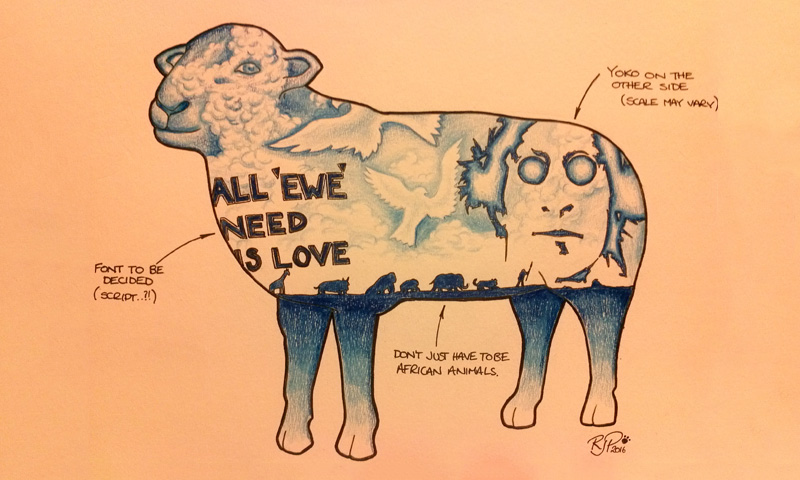 YOKO ON THE
OTHER SIDE
(SCALE MAY VARY)
ALL 'EWE'
NEED
IS LOVE
FONT TO BE
DECIDED
(SCRIPT..?!)
DON'T JUST HAVE TO BE
AFRICAN ANIMALS.
RJP
2016